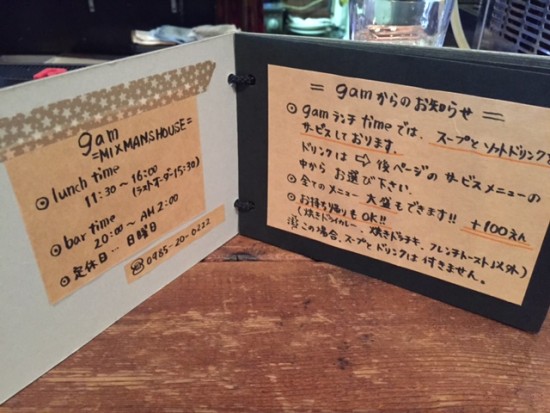 gam
=MIXMANSHOUSE=
◎lunch time
11:30〜16:00
(ラストオーダー15:30)
◎bar time
20:00〜AM2:00
◎定休日…日曜日
☎0965-20-0222
= gamからのお知らせ =
◎gamランチtimeでは、スープとソフトドリンクを
サービスしております。
ドリンクは⇨後ページのサービスメニューの
中からお選び下さい。
◎全てのメニュー大盛もできます!! +100えん
◎お持ち帰りもOK!!
(焼きドライカレー、焼きドラチキ、フレンチトースト以外)
※この場合、スープとドリンクは付きません。